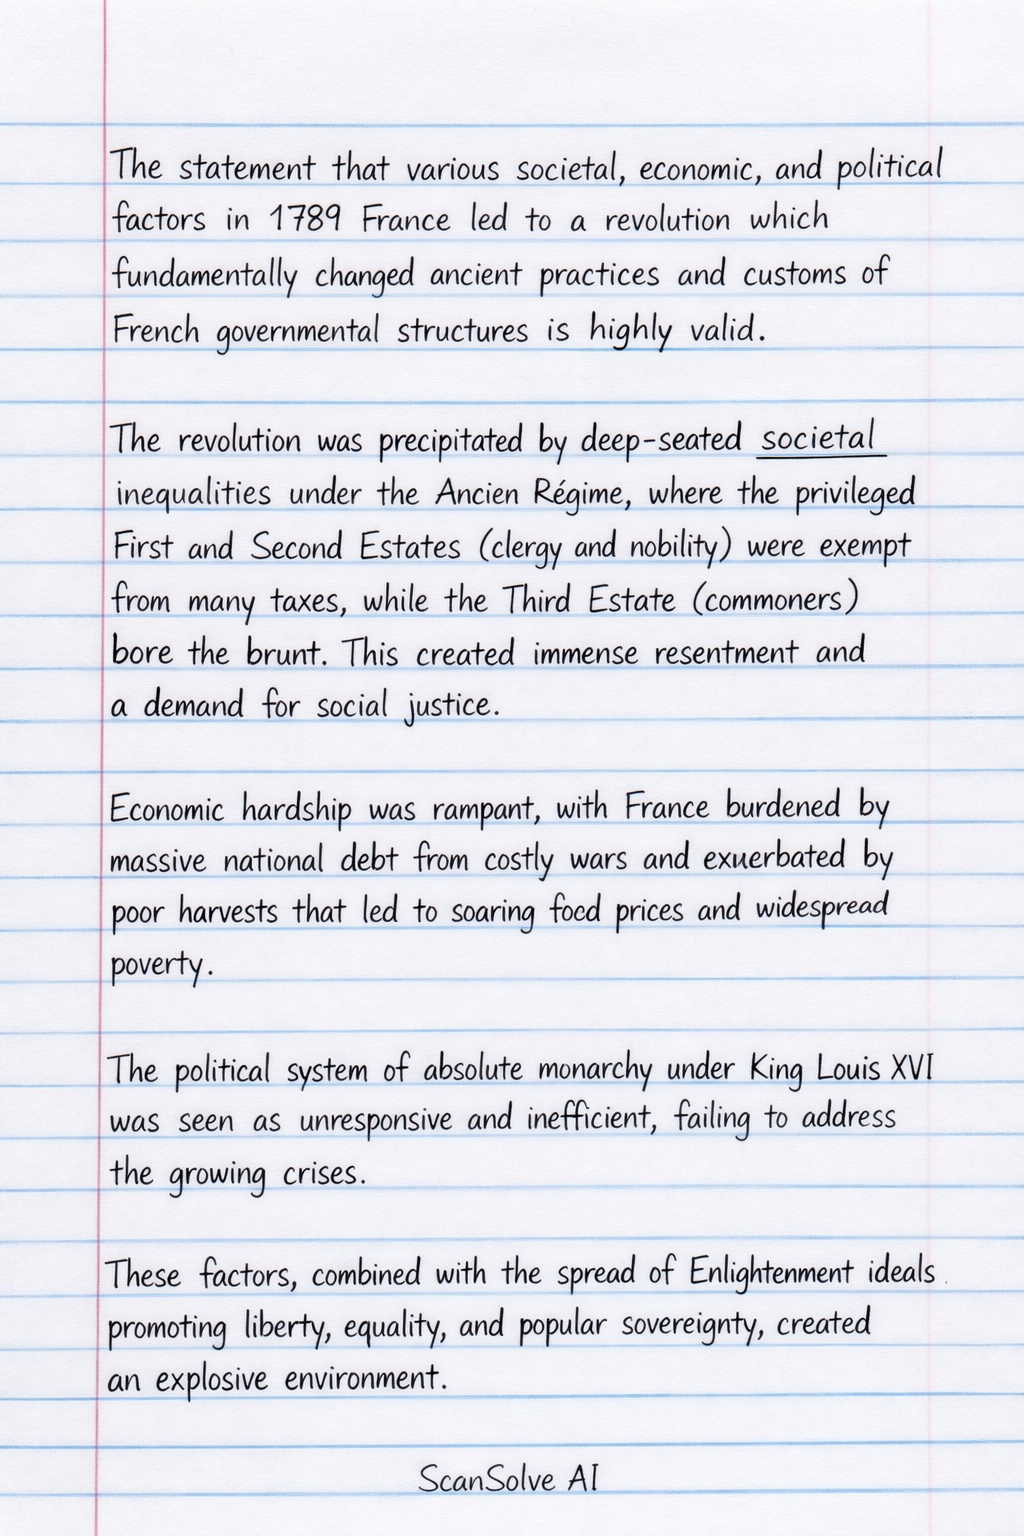 The statement that various societal, economic, and political
factors in 1789 France led to a revolution which
fundamentally changed ancient practices and customs of
French governmental structures is highly valid.
The revolution was precipitated by deep-seated societal
inequalities under the Ancien Régime, where the privileged
First and Second Estates (clergy and nobility) were exempt
from many taxes, while the Third Estate (commoners)
bore the brunt. This created immense resentment and
a demand for social justice.
Economic hardship was rampant, with France burdened by
massive national debt from costly wars and exuerbated by
poor harvests that led to soaring focd prices and widespread
poverty.
The political system of absolute monarchy under King Louis XVI
was seen as unresponsive and inefficient, failing to address
the growing crises.
These factors, combined with the spread of Enlightenment ideals
promoting liberty, equality, and popular sovereignty, created
an explosive environment.
ScanSolve AI